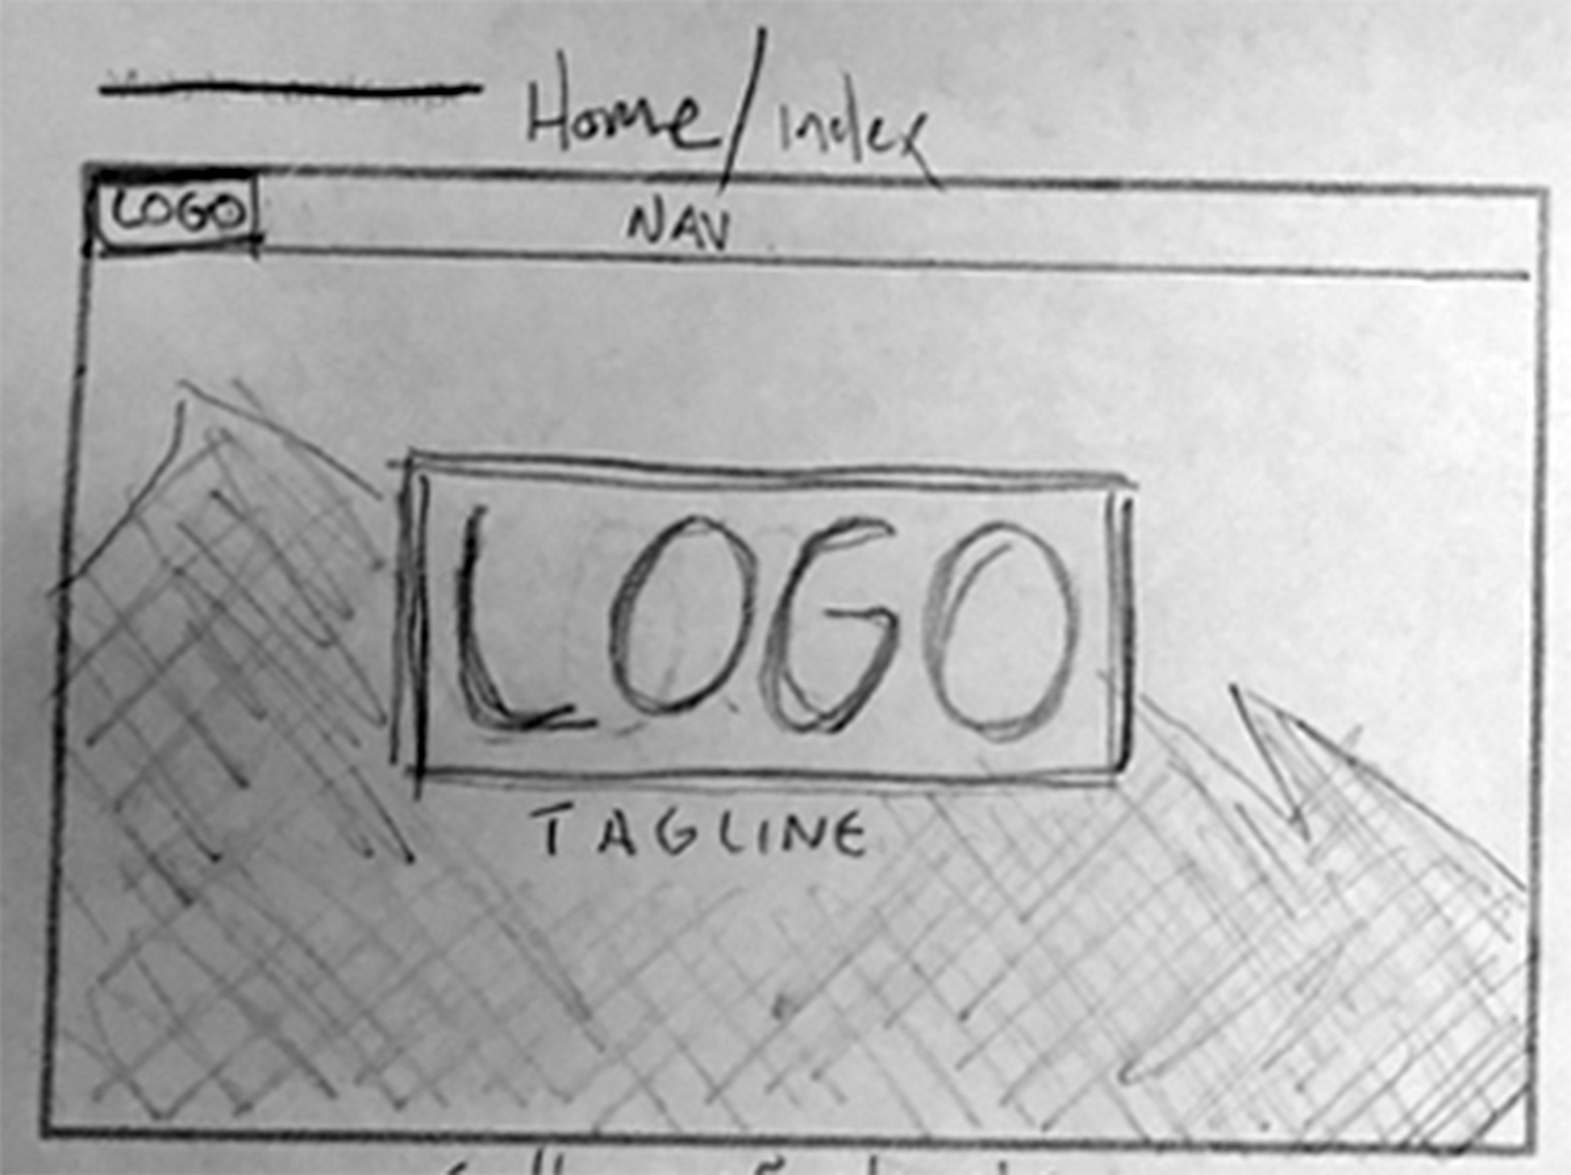 Home/index
LOGO
NAV
LOGO
TAGLINE